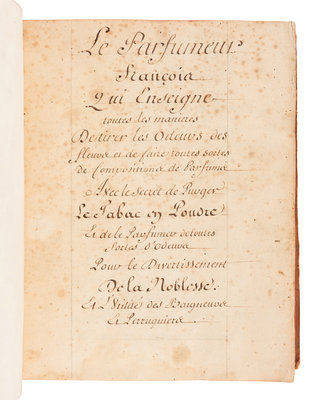 Le Parfumeur
François
Qui Enseigne
toutes les manieres
De tirer les Odeurs des
fleurs et de faire toutes sortes
de Compositions de Parfums
Avec le Secret de Purger
Le Tabac en Poudre
Et de le Parfumer de toutes
Sortes d'Odeurs
Pour le Divertissement
De la Noblesse.
Et L'Utilité des Baigneurs
Et Perruquiers